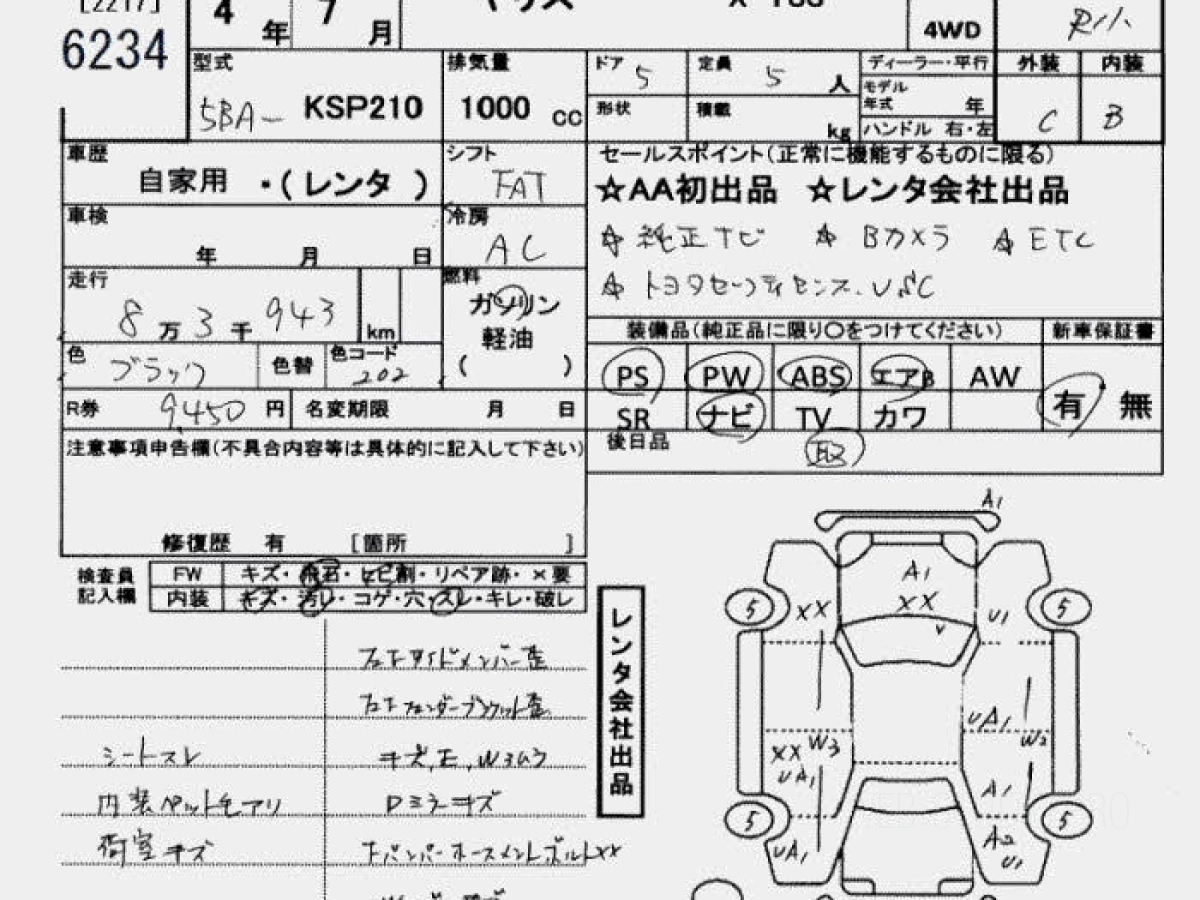 [2217]
6234
4年 7月
4WD
型式
5BA- KSP210
排気量
1000 cc
ドア 5
定員 5 人
ディーラー・平行
外装 内装
形状
積載 kg
モデル年式 年
ハンドル 右・左
C B
車歴
自家用 ・(レンタ )
シフト
FAT
セールスポイント(正常に機能するものに限る)
☆AA初出品 ☆レンタ会社出品
車検
年 月 日
冷房
AC
☆純正ナビ ☆Bカメラ ☆ETC
☆トヨタセーフティセンス.VSC
走行
8万3千943 km
燃料
ガソリン
軽油
( )
色 ブラック
色替
色コード 202
装備品(純正品に限り〇をつけてください)
新車保証書
PS PW ABS エアB AW
有 無
SR ナビ TV カワ
R券 9,450 円
名変期限 月 日
後日品
取
注意事項申告欄(不具合内容等は具体的に記入して下さい)
修復歴 有 [箇所 ]
検査員記入欄
FW キズ・飛石・ヒビ割・リペア跡・×要
内装 キズ・汚レ・コゲ・穴・スレ・キレ・破レ
レンタ会社出品
シートスレ
キズ,E,Wョムラ
内装ペット毛アリ
Dミラーキズ
荷室キズ
A1
A1
XX
XX
U1
5
5
v
UA1
W2
XX W3
UA1
A1
5
5
UA1
A2
U1